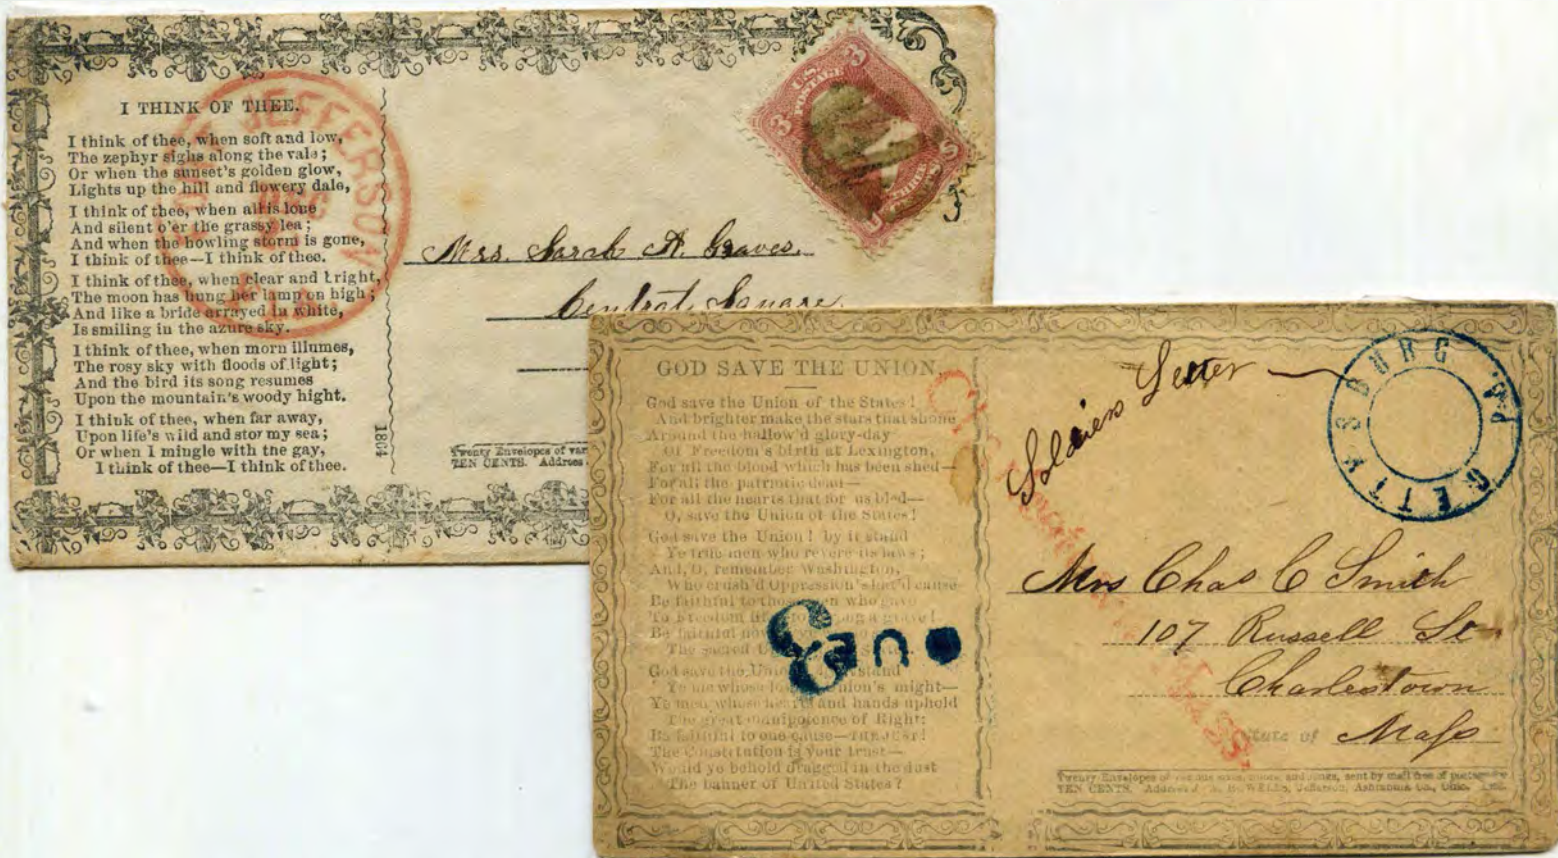 I THINK OF THEE.
I think of thee, when soft and low,
The zephyr sighs along the vale;
Or when the sunset's golden glow,
Lights up the hill and flowery dale,
I think of thee, when all is lone
And silent o'er the grassy lea;
And when the howling storm is gone,
I think of thee—I think of thee.
I think of thee, when clear and bright,
The moon has hung her lamp on high;
And like a bride arrayed in white,
Is smiling in the azure sky.
I think of thee, when morn illumes,
The rosy sky with floods of light;
And the bird its song resumes
Upon the mountain's woody hight.
I think of thee, when far away,
Upon life's wild and stormy sea;
Or when I mingle with the gay,
I think of thee—I think of thee.
1864
JEFFERSON
U.S. POSTAGE
3 3
THREE
U S
Mrs. Sarah A. Graves.
Central Square.
Twenty Envelopes of var
TEN CENTS. Address
GOD SAVE THE UNION.
God save the Union of the States!
And brighter make the stars that shone
Around the hallow'd glory-day
Of Freedom's birth at Lexington,
For all the blood which has been shed—
For all the patriotic dead—
For all the hearts that for us bled—
O, save the Union of the States!
God save the Union! by it stand
Ye true men who revere its laws;
And, O, remember Washington,
Who crush'd Oppression's cause
Be faithful to those men who gave
To Freedom a grave!
Be faithful
The sacred
God save the Union stand
Ye whose Union's might—
Ye men, whose heart and hands uphold
The great omnipotence of Right:
Be faithful to one cause—THE JUST!
The Constitution is your trust—
Would ye behold dragged in the dust
The banner of United States?
Soldiers Letter
GETTYSBURG PA.
Mrs Chas C Smith
107 Russell St
Charlestown
State of Mass
MASS.
Twenty Envelopes of various sizes, and sent by mail free of postage for
TEN CENTS. Address WELLS, Jefferson, Ashtabula Co., Ohio.